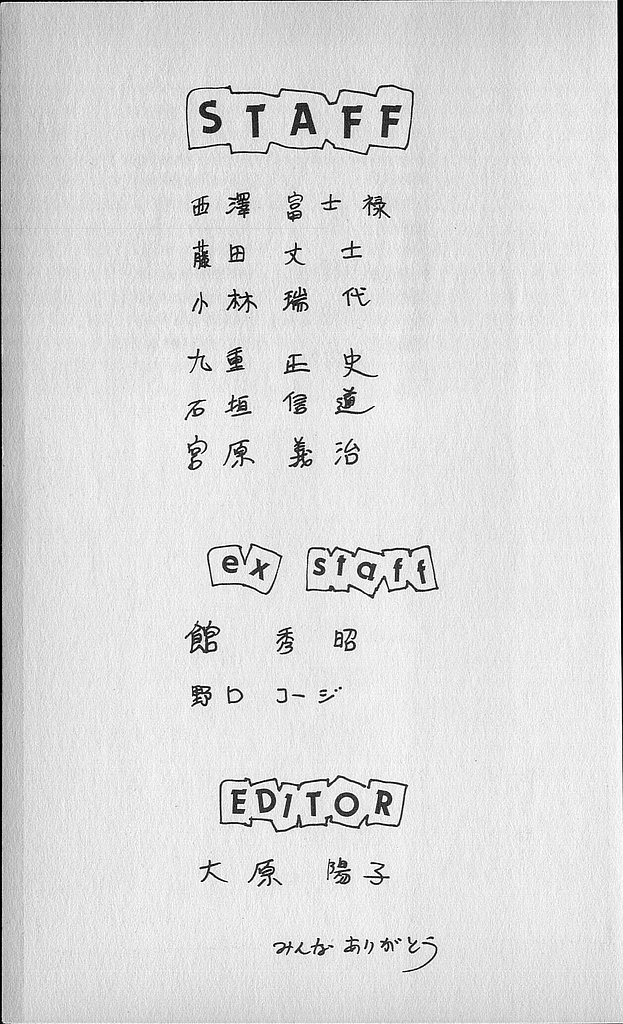 STAFF
西澤 富士禄
藤田 丈士
小林 瑞代
九重 正史
石垣 信道
宮原 義治
ex staff
館 秀昭
野口 コージ
EDITOR
大原 陽子
みんな ありがとう